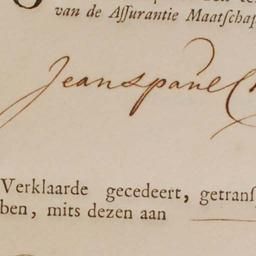 van de Aſſurantie Maatſchap
Jeanspaul
Verklaarde gecedeert, getranſ
ben, mits dezen aan